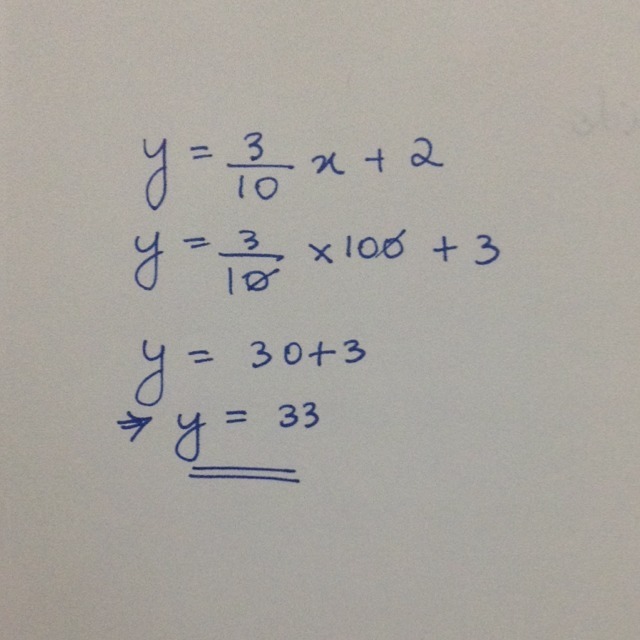 y = 3/10 x + 2
y = 3/10 × 100 + 3
y = 30 + 3
⇒ y = 33